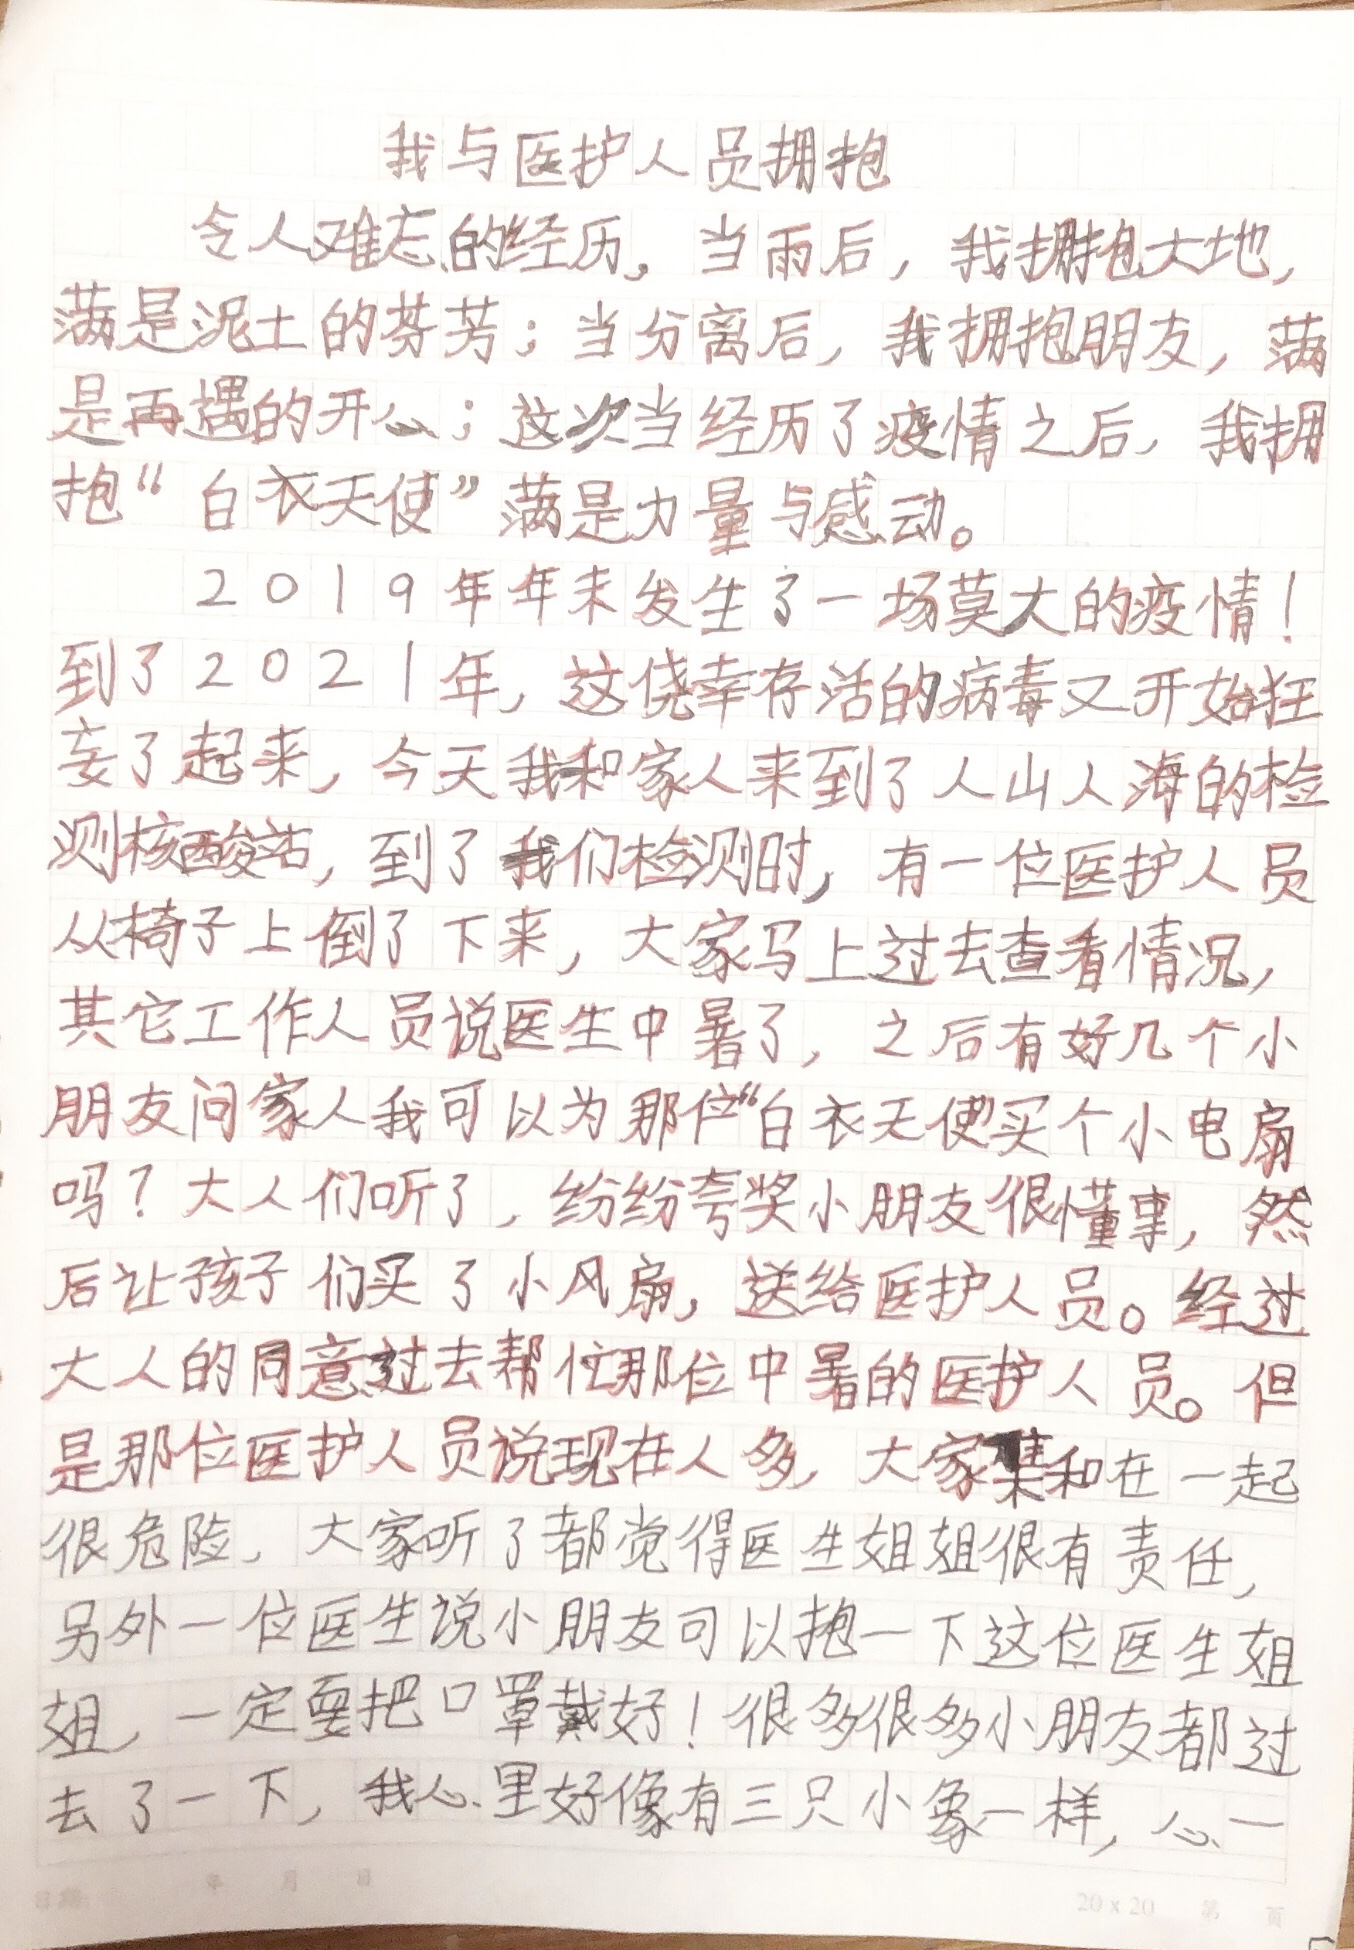 我与医护人员拥抱
令人难忘的经历。当雨后，我拥抱大地，
满是泥土的芬芳；当分离后，我拥抱朋友，满
是再遇的开心；这次当经历了疫情之后，我拥
抱“白衣天使”满是力量与感动。
2019年年末发生了一场莫大的疫情！
到了2021年，这侥幸存活的病毒又开始狂
妄了起来，今天我和家人来到了人山人海的检
测核酸站，到了我们检测时，有一位医护人员
从椅子上倒了下来，大家马上过去查看情况，
其它工作人员说医生中暑了，之后有好几个小
朋友问家人我可以为那位“白衣天使买个小电扇
吗？大人们听了，纷纷夸奖小朋友很懂事，然
后让孩子们买了小风扇，送给医护人员。经过
大人的同意过去帮忙那位中暑的医护人员。但
是那位医护人员说现在人多，大家集和在一起
很危险，大家听了都觉得医生姐姐很有责任，
另外一位医生说小朋友可以抱一下这位医生姐
姐，一定要把口罩戴好！很多很多小朋友都过
去了一下，我心里好像有三只小象一样，心一
日期： 年 月 日 20×20 第 页